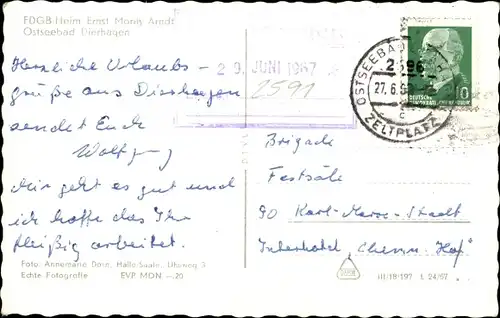 FDGB-Heim Ernst Moritz Arndt
Ostseebad Dierhagen
Herzliche Urlaubs-
grüße aus Dierhagen
sendet Euch
Wolfgang
Mir geht es gut und
ich hoffe das Ihr
fleißig arbeitet.
Foto: Annemarie Dorn, Halle-Saale, Uhuweg 3
Echte Fotografie EVP MDN —20
29. JUNI 1967
2591
OSTSEEBAD
2596
27.6.
c
ZELTPLATZ
DEUTSCHE
DEMOKRATISCHE REPUBLIK
10
Brigade
Festsäle
90 Karl-Marx-Stadt
Interhotel „Chemn. Hof"
III/18/197 L 24/67